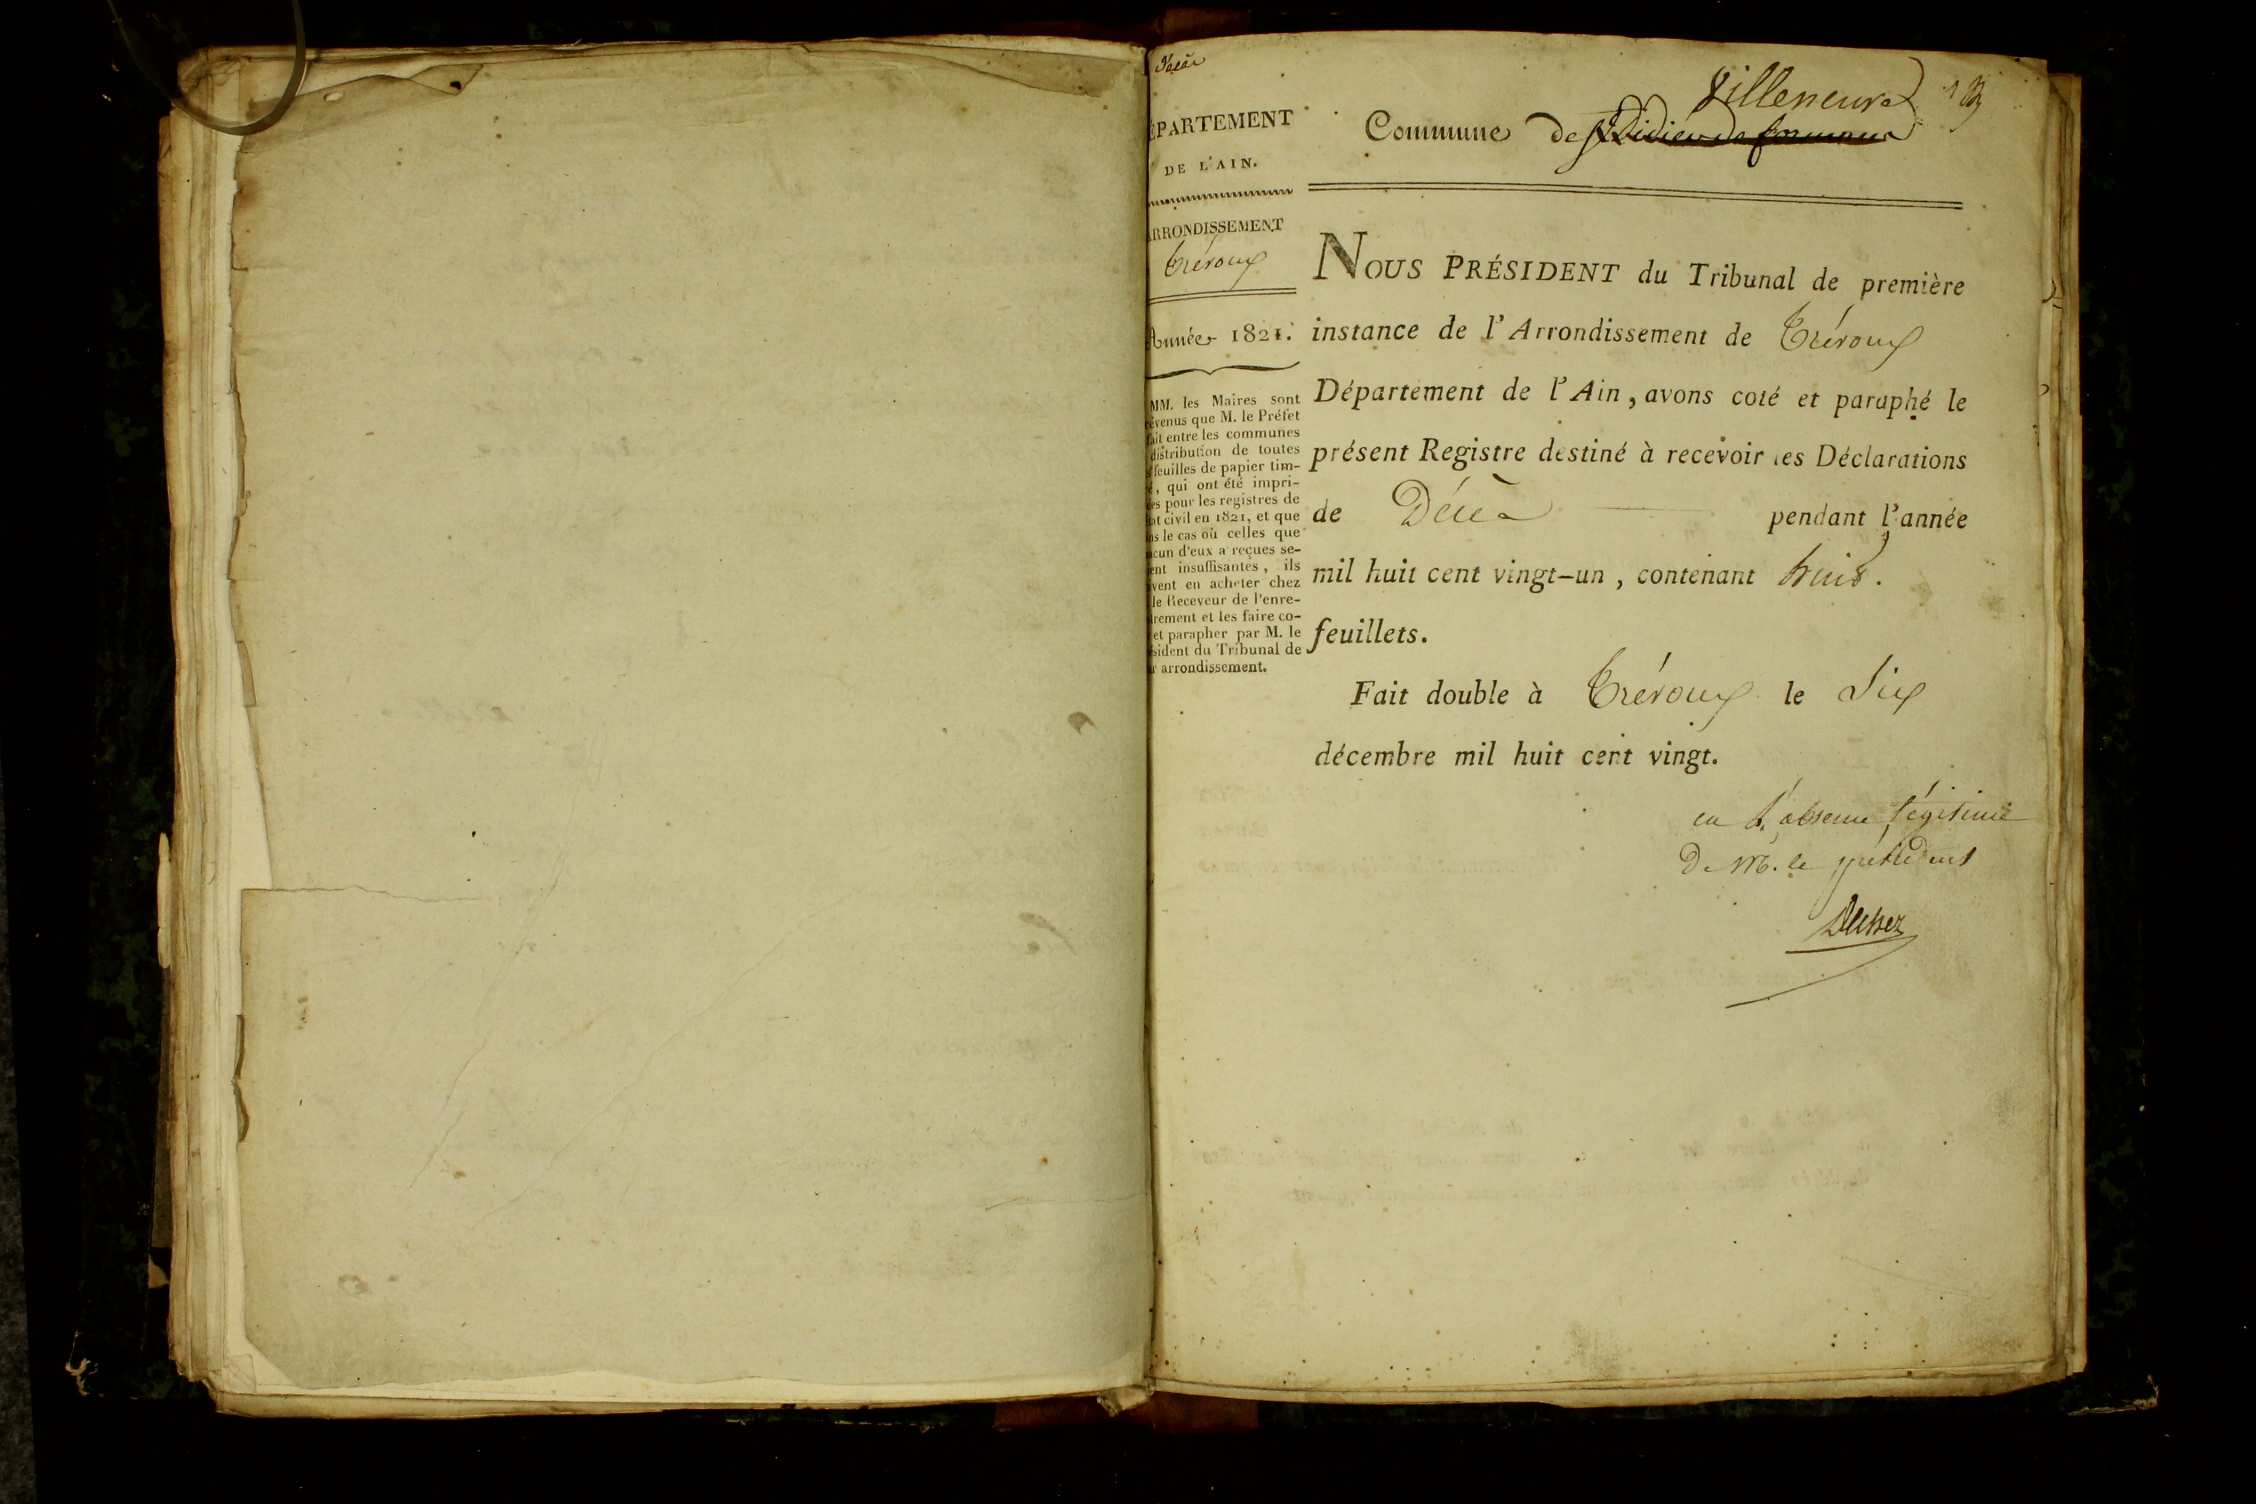 ÉPARTEMENT
DE L'AIN.
ARRONDISSEMENT
Trévoux
Année 1821.
MM. les Maires sont
évenus que M. le Préfet
fait entre les communes
distribution de toutes
feuilles de papier tim-
é, qui ont été impri-
es pour les registres de
at civil en 1821, et que
ns le cas où celles que
acun d'eux a reçues se-
ent insuffisantes, ils
vent en acheter chez
le Receveur de l'enre-
trement et les faire co-
et parapher par M. le
ésident du Tribunal de
r arrondissement.
Villeneuve
Commune de St Didier de formans
NOUS PRÉSIDENT du Tribunal de première
instance de l'Arrondissement de Trévoux
Département de l'Ain, avons coté et paraphé le
présent Registre destiné à recevoir les Déclarations
de Décès pendant l'année
mil huit cent vingt-un, contenant huit.
feuillets.
Fait double à Trévoux le Six
décembre mil huit cent vingt.
en l'absence légitime
De M. le président